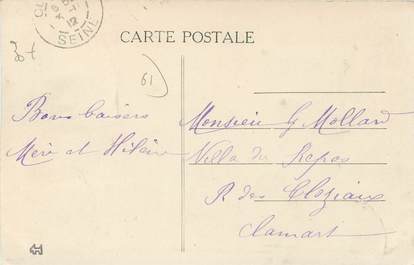 SEINE
12
CARTE POSTALE
61
Bons baisers
Mère et Hilaire
Monsieur G Mollard
Villa du Repos
R des
Clamart